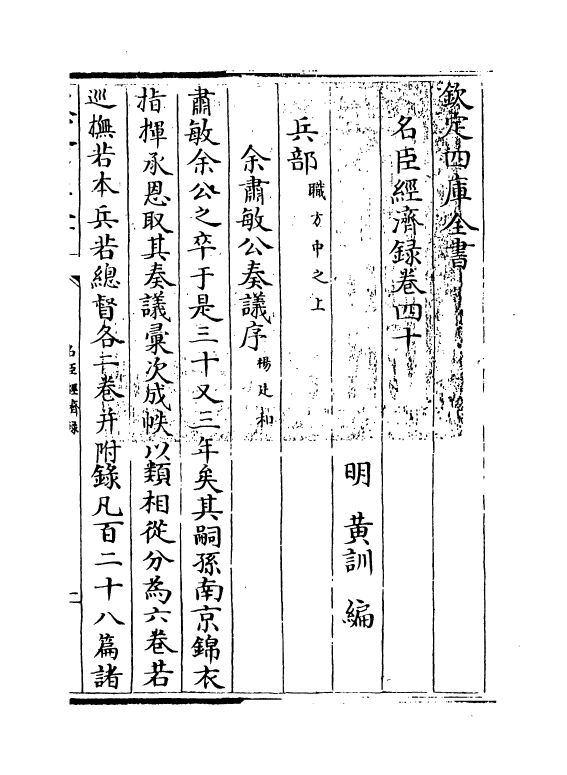 欽定四庫全書
名臣經濟錄卷四十
明 黄訓 編
兵部職方中之上
余肅敏公奏議序楊廷和
肅敏余公之卒于是三十又三年矣其嗣孫南京錦衣
指揮承恩取其奏議彚次成帙以類相從分為六卷若
巡撫若本兵若總督各二卷并附錄凡百二十八篇諸
名臣經濟錄